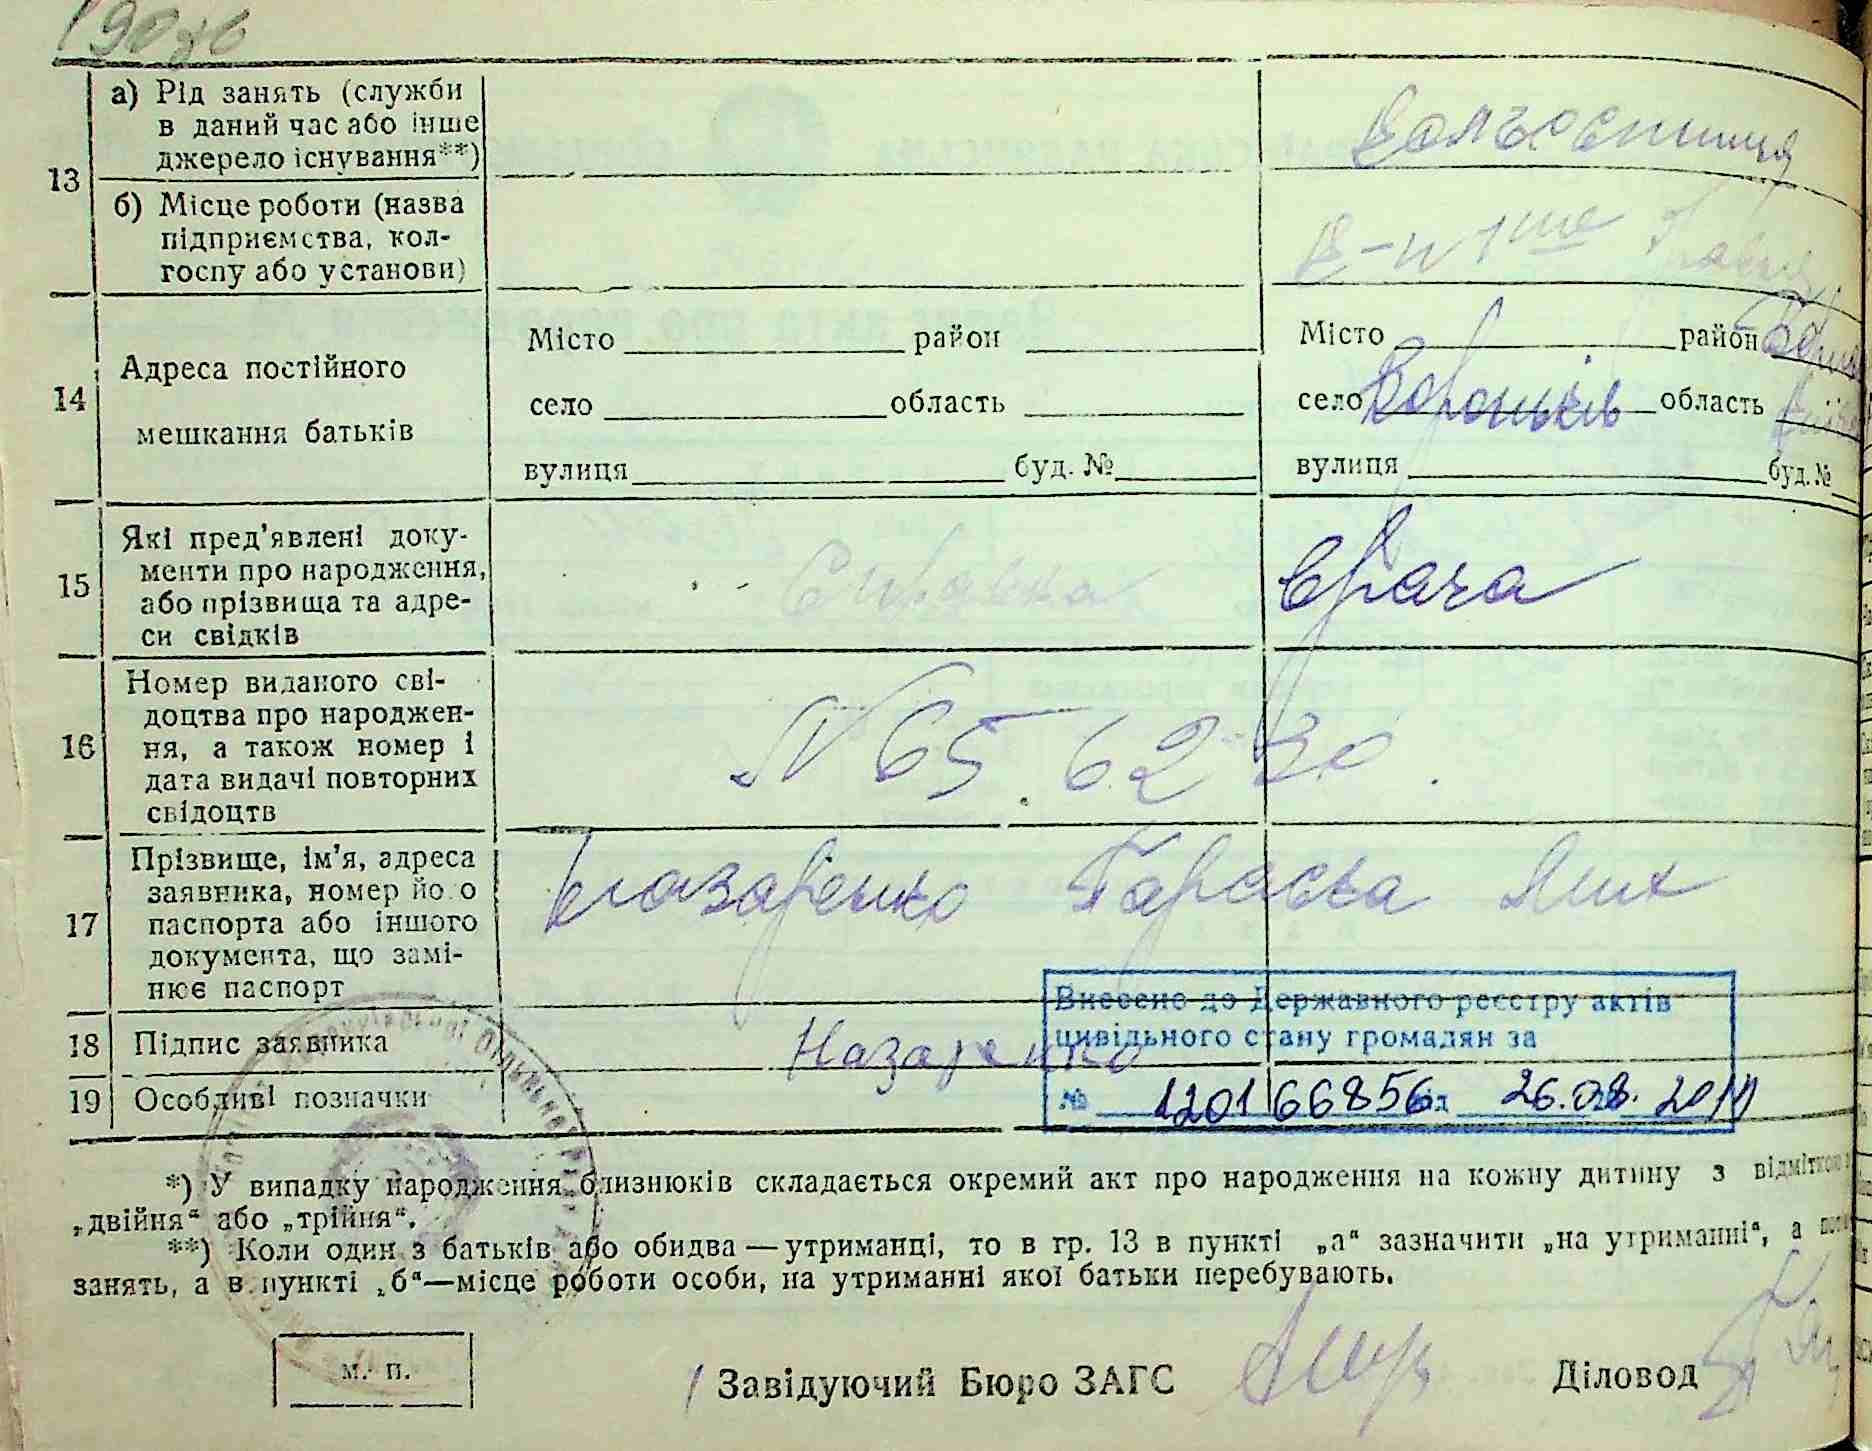 13
а) Рід занять (служби
в даний час або інше
джерело існування**)
Колгоспниця
б) Місце роботи (назва
підприємства, кол-
госпу або установи)
К-п 1ше Травня
14
Адреса постійного
мешкання батьків
Місто район
село область
вулиця буд. №
Місто район
село Вороньків область
вулиця буд. №
15
Які пред’явлені доку-
менти про народження,
або прізвища та адре-
си свідків
Справка врача
16
Номер виданого сві-
доцтва про народжен-
ня, а також номер і
дата видачі повторних
свідоцтв
N 65 62 30.
17
Прізвище, ім’я, адреса
заявника, номер його
паспорта або іншого
документа, що замі-
нює паспорт
Назаренко Параска Мих
18 Підпис заявника
Назаренко
19 Особливі позначки
Внесено до Державного реєстру актів
цивільного стану громадян за
№ 1201166856 від 26.08.2011
*) У випадку народження близнюків складається окремий акт про народження на кожну дитину з відміткою
„двійня“ або „трійня“.
**) Коли один з батьків або обидва — утриманці, то в гр. 13 в пункті „а“ зазначити „на утриманні“, а
занять, а в пункті „б“—місце роботи особи, на утриманні якої батьки перебувають.
М. П.
Завідуючий Бюро ЗАГС
Діловод